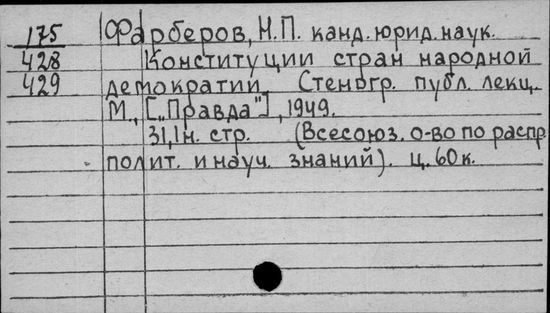 175 Фарберов, Н.П. канд. юрид. наук.
428 Конституции стран народной
429 демократии. Стеногр. публ. лекц.
М., [„Правда"], 1949.
31, 1 н. стр. (Всесоюз. о-во по распр.
полит. и науч. знаний). ц. 60 к.